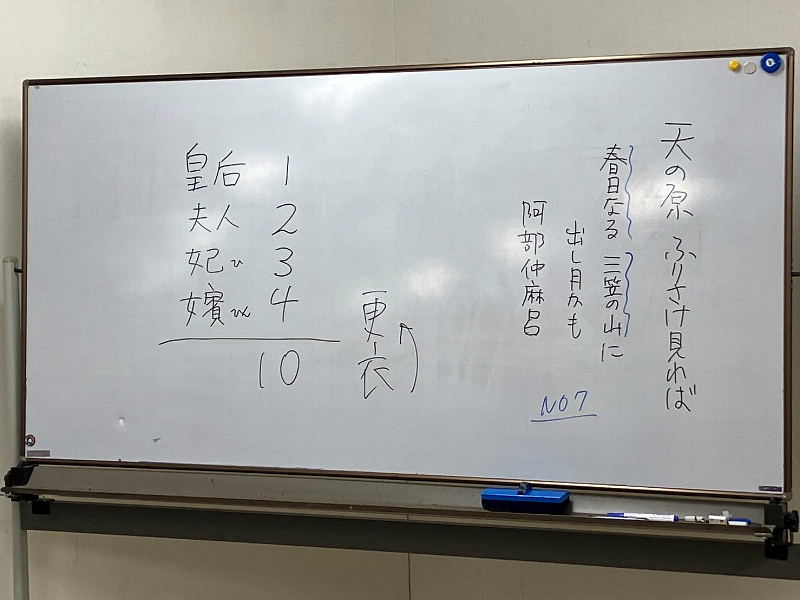 天の原 ふりさけ見れば
春日なる 三笠の山に
出し月かも
阿部仲麻呂
NO7
皇后 1
夫人 2
妃ひ 3
嬪ひん 4
10
更衣